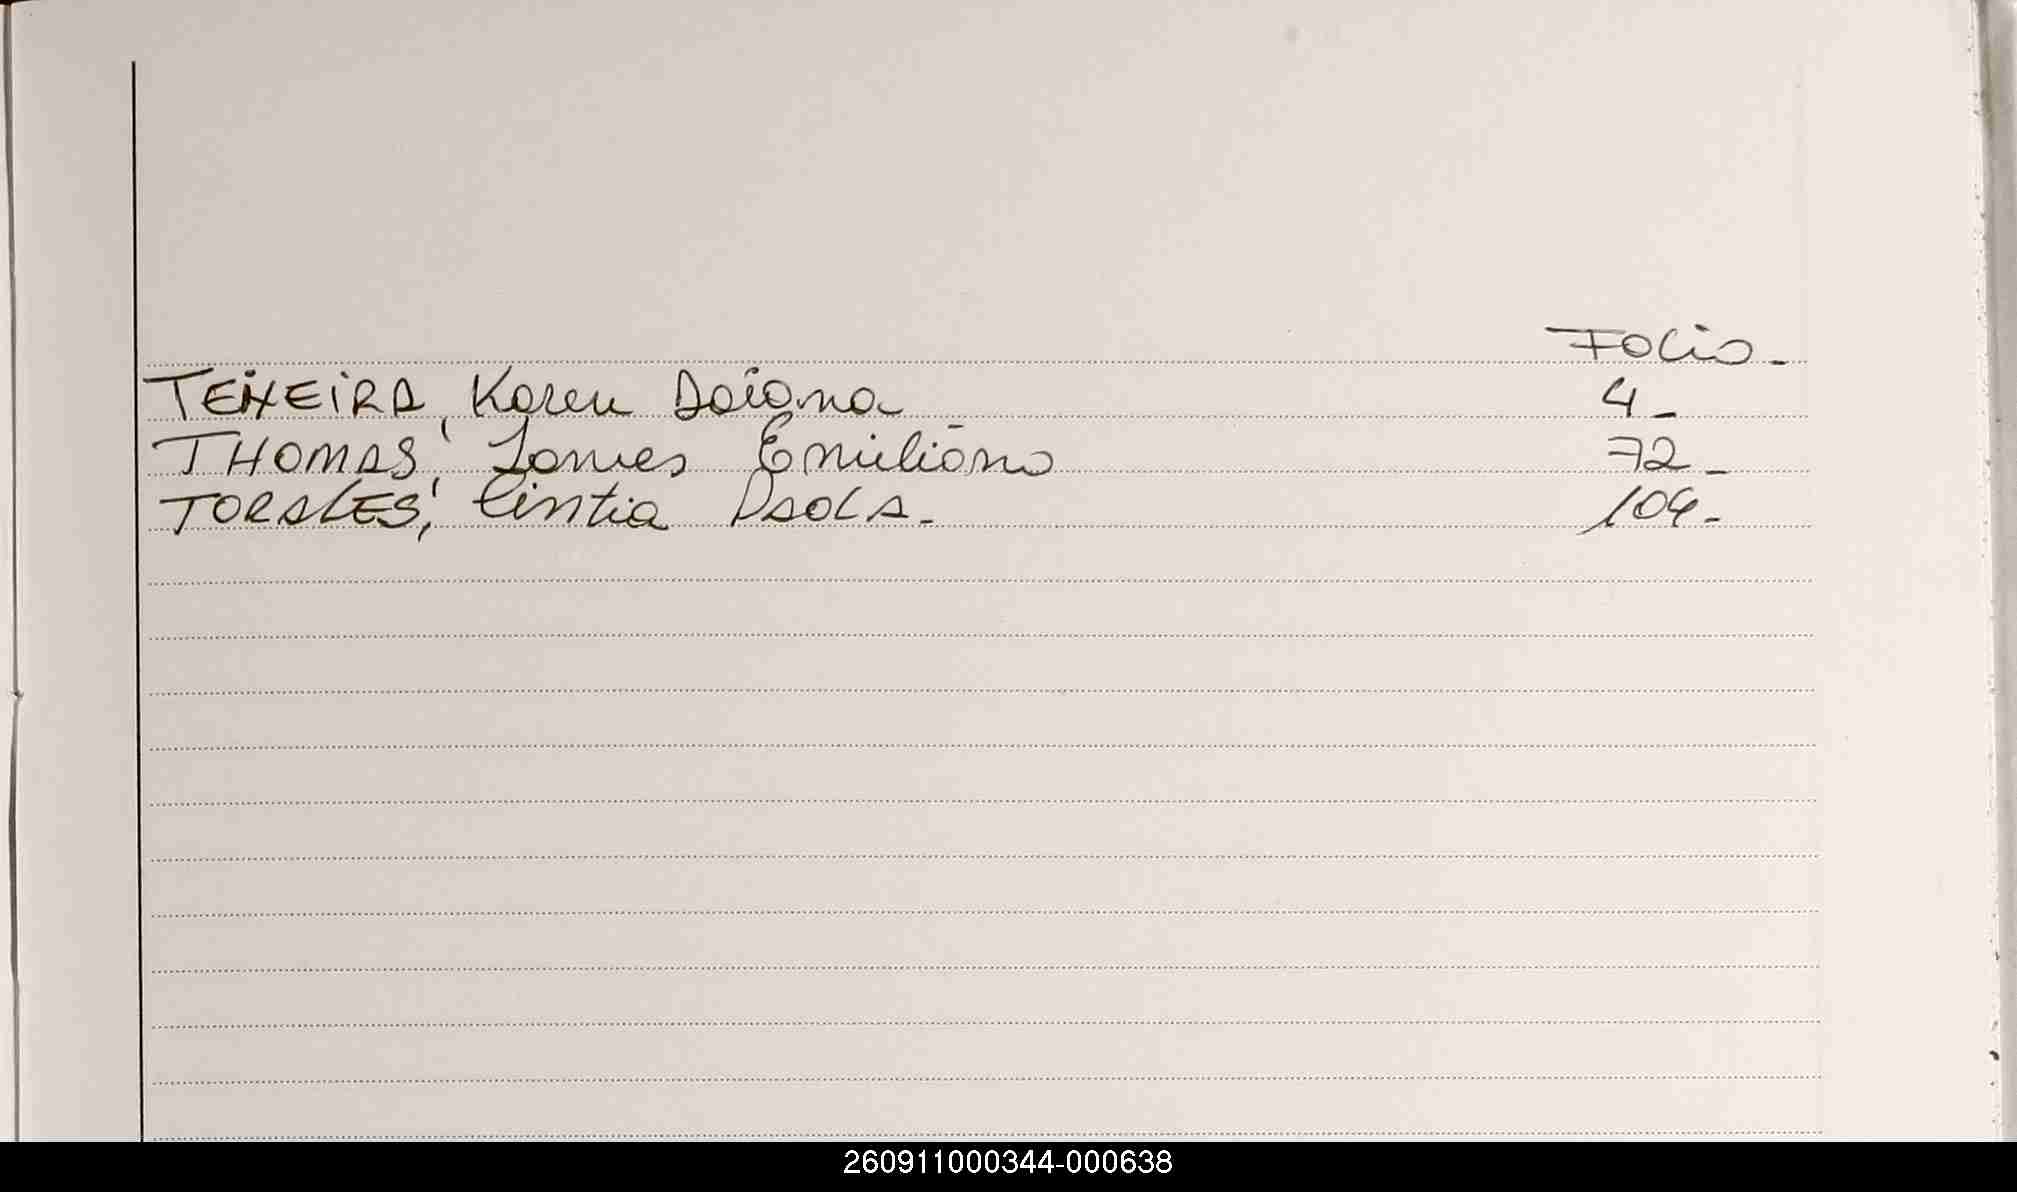 Folio -
TEIXEIRA, Karen Daiana 4 -
THOMAS, James Emiliano 72 -
TORALES, Cintia PAOLA. 104 -
260911000344-000638